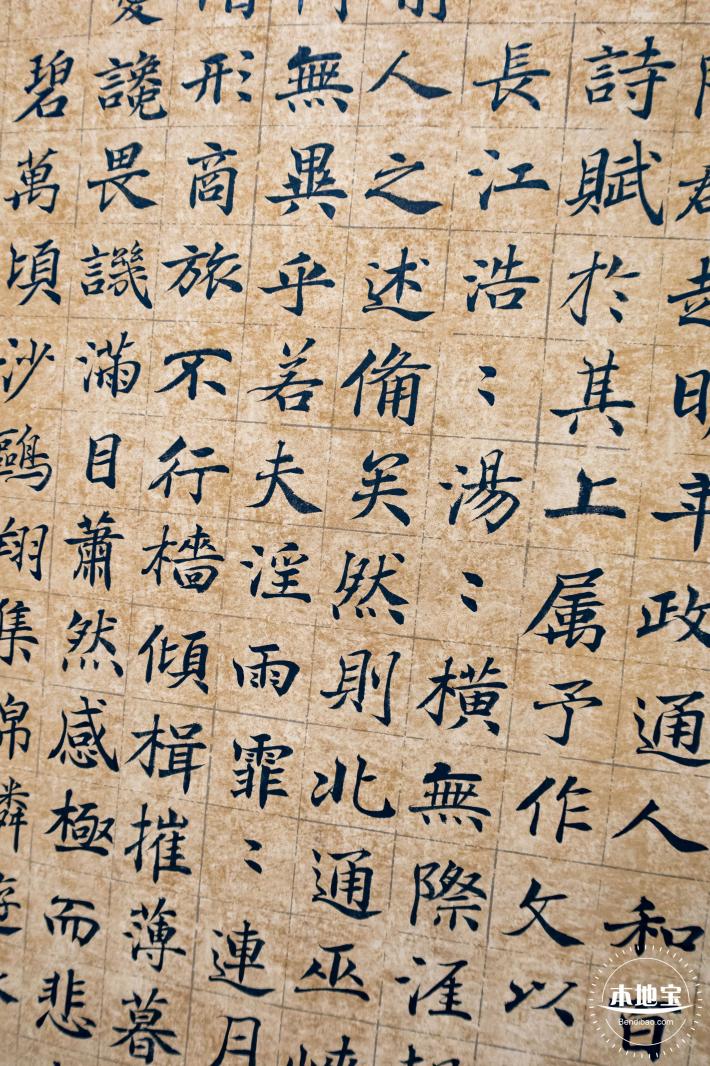 君越明年政通人和
詩賦於其上属予作文以
長江浩：湯：橫無際涯
前人之述備矣然則北通巫峽
無異乎若夫淫雨霏：連月
形商旅不行檣傾楫摧薄暮
憂讒畏譏滿目蕭然感極而悲
碧萬頃沙鷗翔集錦鱗游
本地宝
Bendibao.com